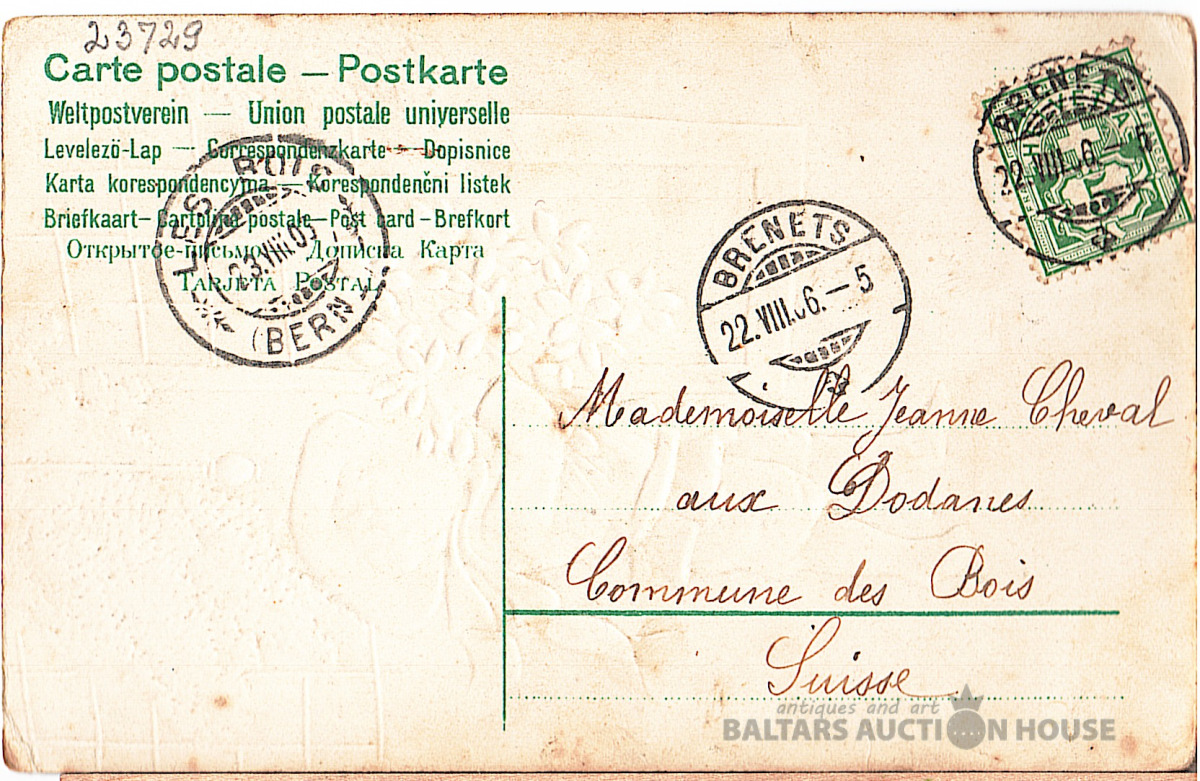 23729
Carte postale — Postkarte
Weltpostverein — Union postale universelle
Levelező-Lap — Correspondenzkarte — Dopisnice
Karta korespondencyjna — Korespondenční listek
Briefkaart — Cartolina postale — Post card — Brefkort
Открытое-письмо — Дописна Карта
TARJETA POSTAL
LES BOIS
23.VIII.06
(BERN)
BRENETS
22.VIII.06. — 5
BRENETS
22.VIII.06. — 5
HELVETIA
5
Mademoiselle Jeanne Cheval
aux Dodanes
Commune des Bois
Suisse
antiques and art
BALTARS AUCTION HOUSE